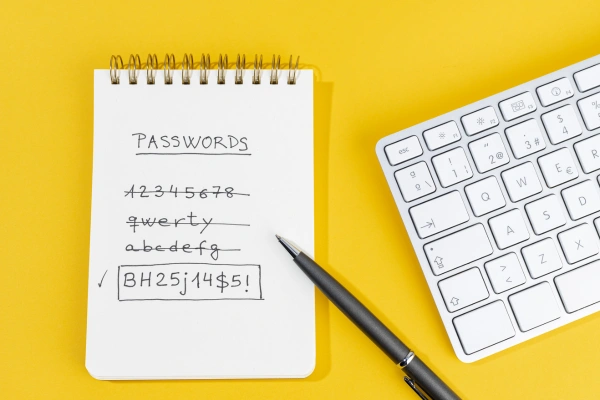 PASSWORDS
12345678
qwerty
abcdefg
✓ BH25j14$5!
esc
! 1 " 2 @ · 3 # $ 4
Q W E € R
A S D
> < Z X